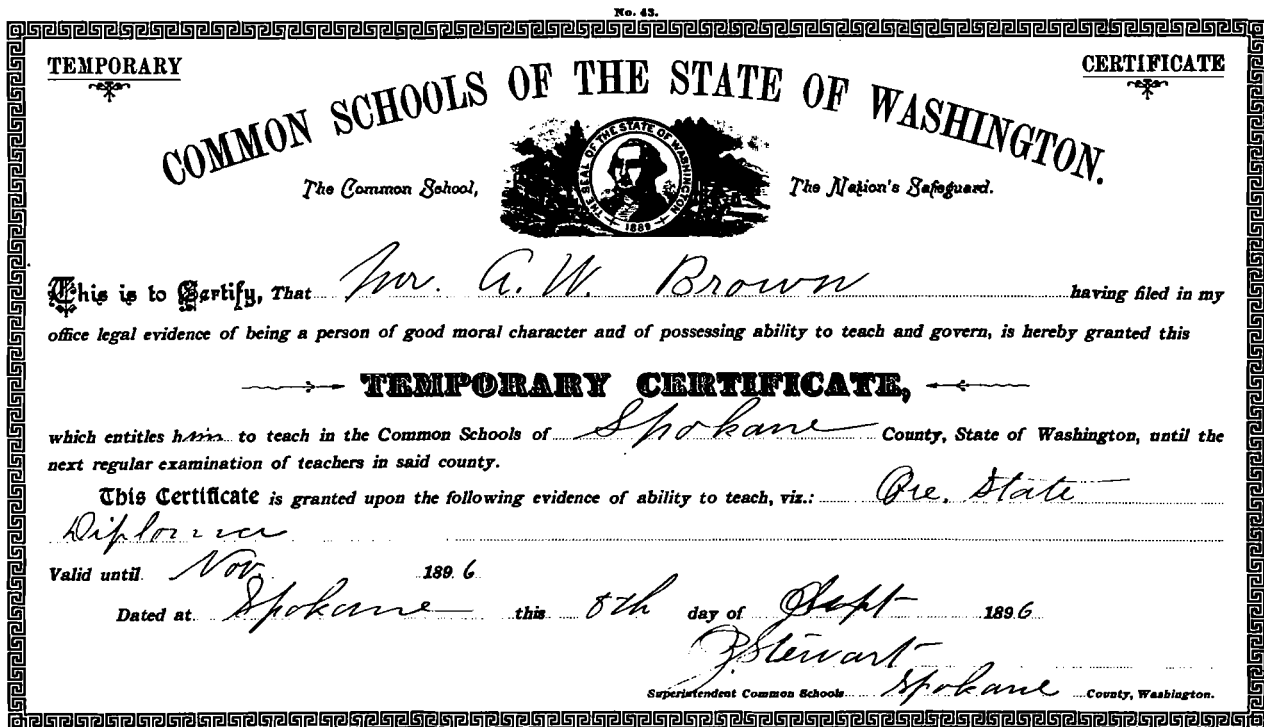 No. 43.
TEMPORARY
CERTIFICATE
COMMON SCHOOLS OF THE STATE OF WASHINGTON.
THE SEAL OF THE STATE OF WASHINGTON
1889
The Common School,
The Nation's Safeguard.
This is to Certify, That Mr. A. W. Brown having filed in my
office legal evidence of being a person of good moral character and of possessing ability to teach and govern, is hereby granted this
TEMPORARY CERTIFICATE,
which entitles him to teach in the Common Schools of Spokane County, State of Washington, until the
next regular examination of teachers in said county.
This Certificate is granted upon the following evidence of ability to teach, viz.: Ore. State
Diploma
Valid until Nov. 1896
Dated at Spokane this 8th day of Sept 1896
Z Stewart
Superintendent Common Schools Spokane County, Washington.